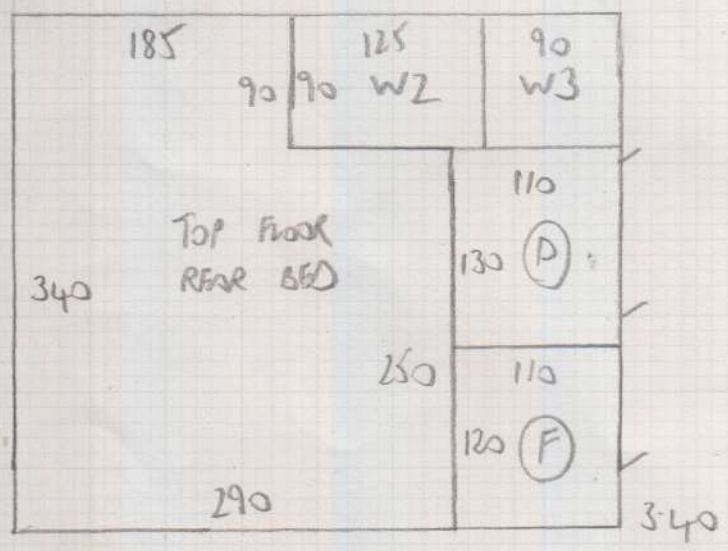 185 125 90
90 90 W2 W3
110
TOP FLOOR
REAR BED
130 D
340
250 110
120 F
290
3.40